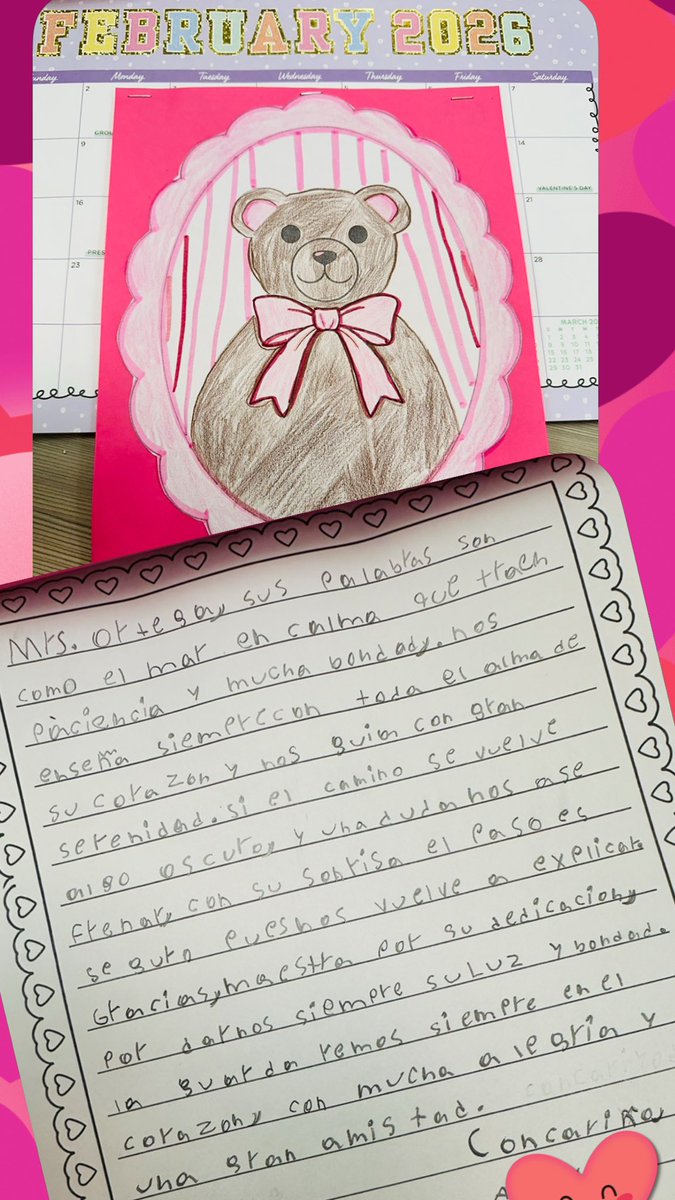 FEBRUARY 2026
Monday Tuesday Wednesday Thursday Friday Saturday
2
7
9
14
VALENTINE'S DAY
16
21
23
28
MARCH
Mrs. Ortega, sus palabras son
como el mar en calma que traen
paciencia y mucha bondady. nos
enseña siempre con toda el alma de
su corazon y nos guia con gran
serenidad. si el camino se vuelve
algo oscuro, y una duda nos ase
frenar, con su sonrisa el paso es
seguro pues nos vuelve a explicar.
Gracias, maestra por su dedicacion,
por darnos siempre su Luz y bondad.
la guardaremos siempre en el
corazon, con mucha alegria y
una gran amistad.
Con cariño